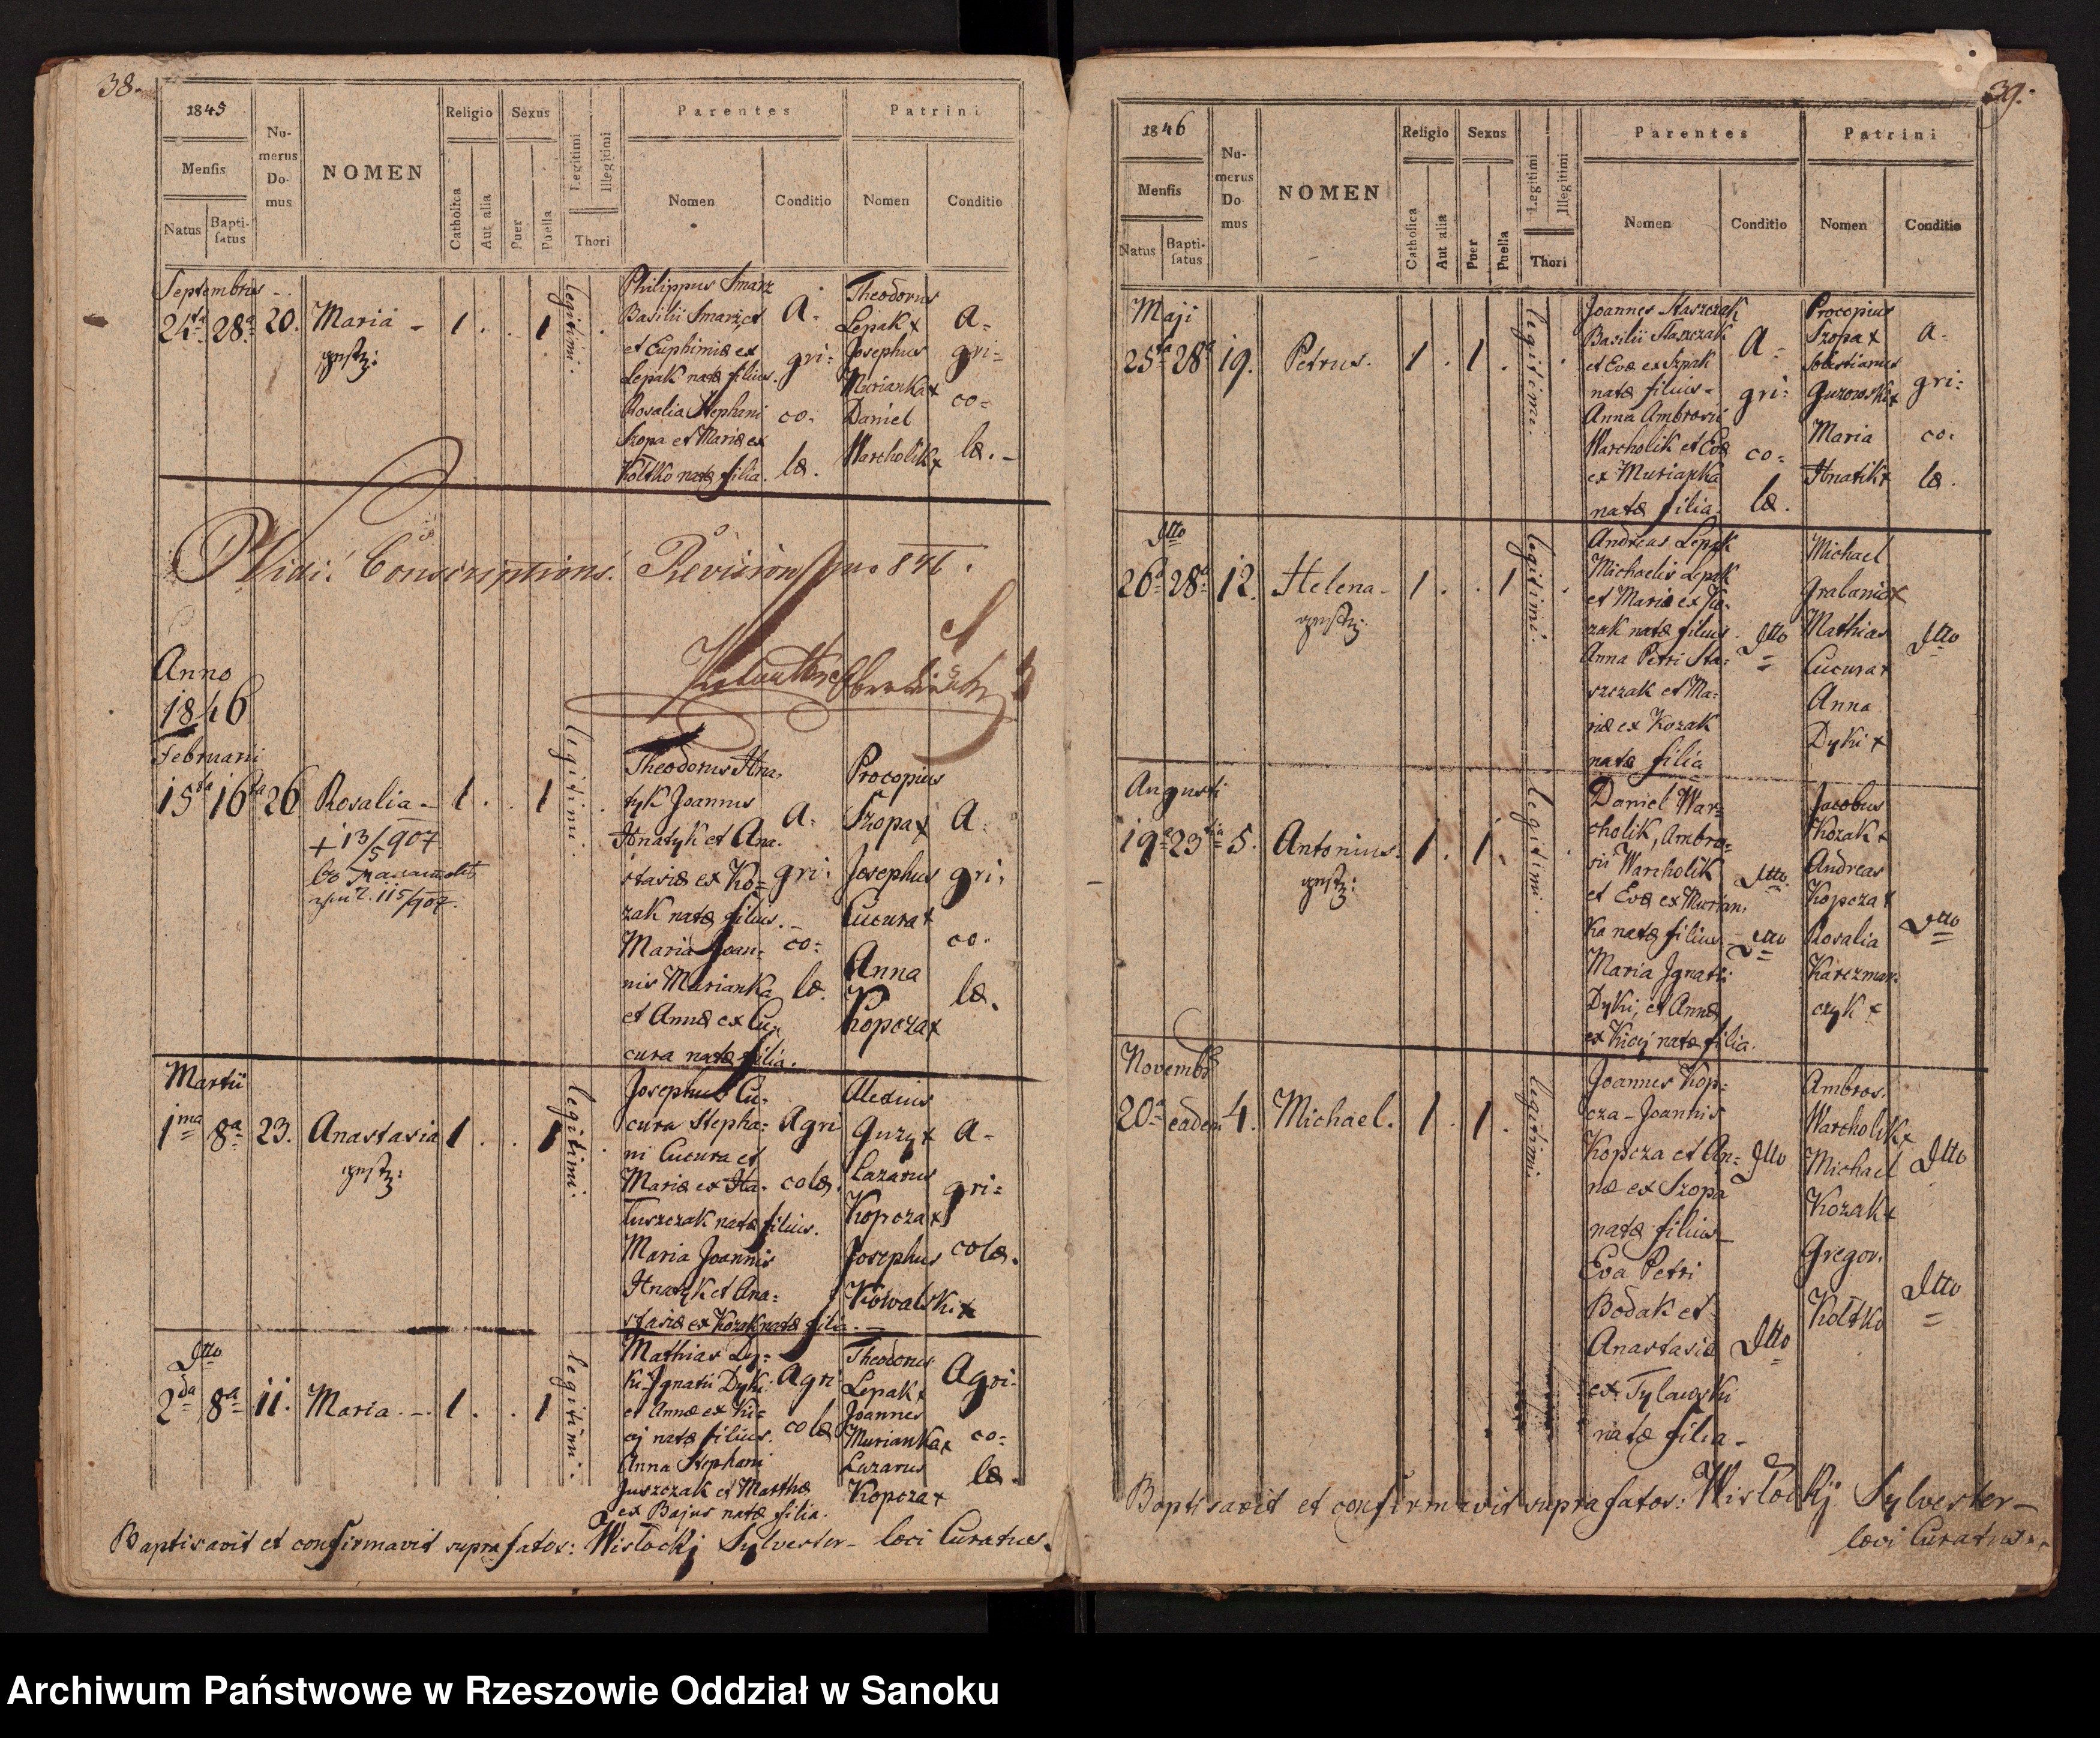 38.
1845
Mensis
Natus
Bapti-
satus
Nu-
merus
Do-
mus
NOMEN
Religio
Catholica
Aut alia
Sexus
Puer
Puella
Legitimi
Illegitimi
Thori
Parentes
Nomen
Conditio
Patrini
Nomen
Conditio
Septembris
24ta 28a 20. Maria - 1 . . 1
legitimi.
Philippus Smarz
Basilii Smarz et
et Euphimiæ ex
Lepak natæ filius.
Rosalia Stephani
Szopa et Mariæ ex
Koltko natæ filia.
A=
gri=
co=
læ.
Theodorus
Lepak x
Josephus
Murianka x
Daniel
Warcholik x
A=
gri=
co=
læ. -
Vidi! Conscriptions. Revision 846.
Anno
1846
Februarii
15ta 16ta 26 Rosalia - 1 . . 1
+ 13/5 907
115/907.
legitimi.
Theodorus Hna=
tyk Joannis
Hnatyk et Ana=
stasiæ ex Ko=
zak natæ filius. -
Maria Joan=
nis Murianka
et Annæ ex Cu=
cura natæ filia.
A=
gri=
co=
læ.
Procopius
Szopa x
Josephus
Cucura x
Anna
Kopcza x
A=
gri=
co=
læ.
Martii
1ma 8a 23. Anastasia 1 . . 1
legitimi.
Josephus Cu=
cura Stepha=
ni Cucura et
Mariæ ex Ha=
luszczak natæ filius.
Maria Joannis
Hnatyk et Ana=
stasiæ ex Kozak natæ filia. -
Agri
colæ.
Alexius
Guzy x
Lazarus
Kopcza x
Josephus
Kowalski x
A=
gri=
colæ.
Dtto
2da 8a 11. Maria. - 1 . . 1
legitimi.
Mathias Dy=
ki Ignatii Dyki
et Annæ ex Ki=
cij natæ filius.
Anna Stephani
Juszczak et Marthæ
ex Bajus natæ filia.
Agri
colæ
Theodorus
Lepak x
Joannes
Murianka x
Lazarus
Kopcza x
Agri=
co=
læ.
Baptisavit et confirmavit supra fatos: Wislockij Sylvester - loci Curatus.
39.
1846
Mensis
Natus
Bapti-
satus
Nu-
merus
Do-
mus
NOMEN
Religio
Catholica
Aut alia
Sexus
Puer
Puella
Legitimi
Illegitimi
Thori
Parentes
Nomen
Conditio
Patrini
Nomen
Conditio
Maji
25ta 28a 19. Petrus. 1 . 1 .
legitimi.
Joannes Staszczak
Basilii Staszczak
et Evæ ex Szpak
natæ filius -
Anna Ambrosii
Warcholik et Evæ
ex Murianka
natæ filia.
A=
gri=
co=
læ.
Procopius
Szopa x
Sebastianus
Gurowski x
Maria
Hnatik x
A=
gri=
co=
læ.
Dtto
26a 28a 12. Helena - 1 . . 1
legitimi.
Andreas Lepak
Michaelis Lepak
et Mariæ ex Ko=
zak natæ filius.
Anna Petri Sta=
szczak et Ma=
riæ ex Kozak
natæ filia
Dtto
Michael
Grabania x
Mathias
Cucura x
Anna
Dyki x
Dtto
Augusti
19a 23tia 5. Antonius. 1 . 1 .
legitimi.
Daniel War=
cholik, Ambro=
sii Warcholik
et Evæ ex Murian=
ka natæ filius. -
Maria Ignatii
Dyki, et Annæ
ex Kicij natæ filia.
Dtto
Dtto
Jacobus
Kozak x
Andreas
Kopcza x
Rosalia
Karczmar=
czyk x
Dtto
Novembr
20a eadem 4. Michael. 1 . 1 .
legitimi.
Joannes Kop=
cza - Joannis
Kopcza et An=
næ ex Szopa
natæ filius -
Eva Petri
Bodak et
Anastasiæ
ex Tylawski
natæ filia -
Dtto
Dtto
Ambros.
Warcholik x
Michael
Kozak x
Gregor.
Koltko
Dtto
Dtto
Baptisavit et confirmavit supra fatos: Wislockij Sylvester -
loci Curatus
Archiwum Państwowe w Rzeszowie Oddział w Sanoku